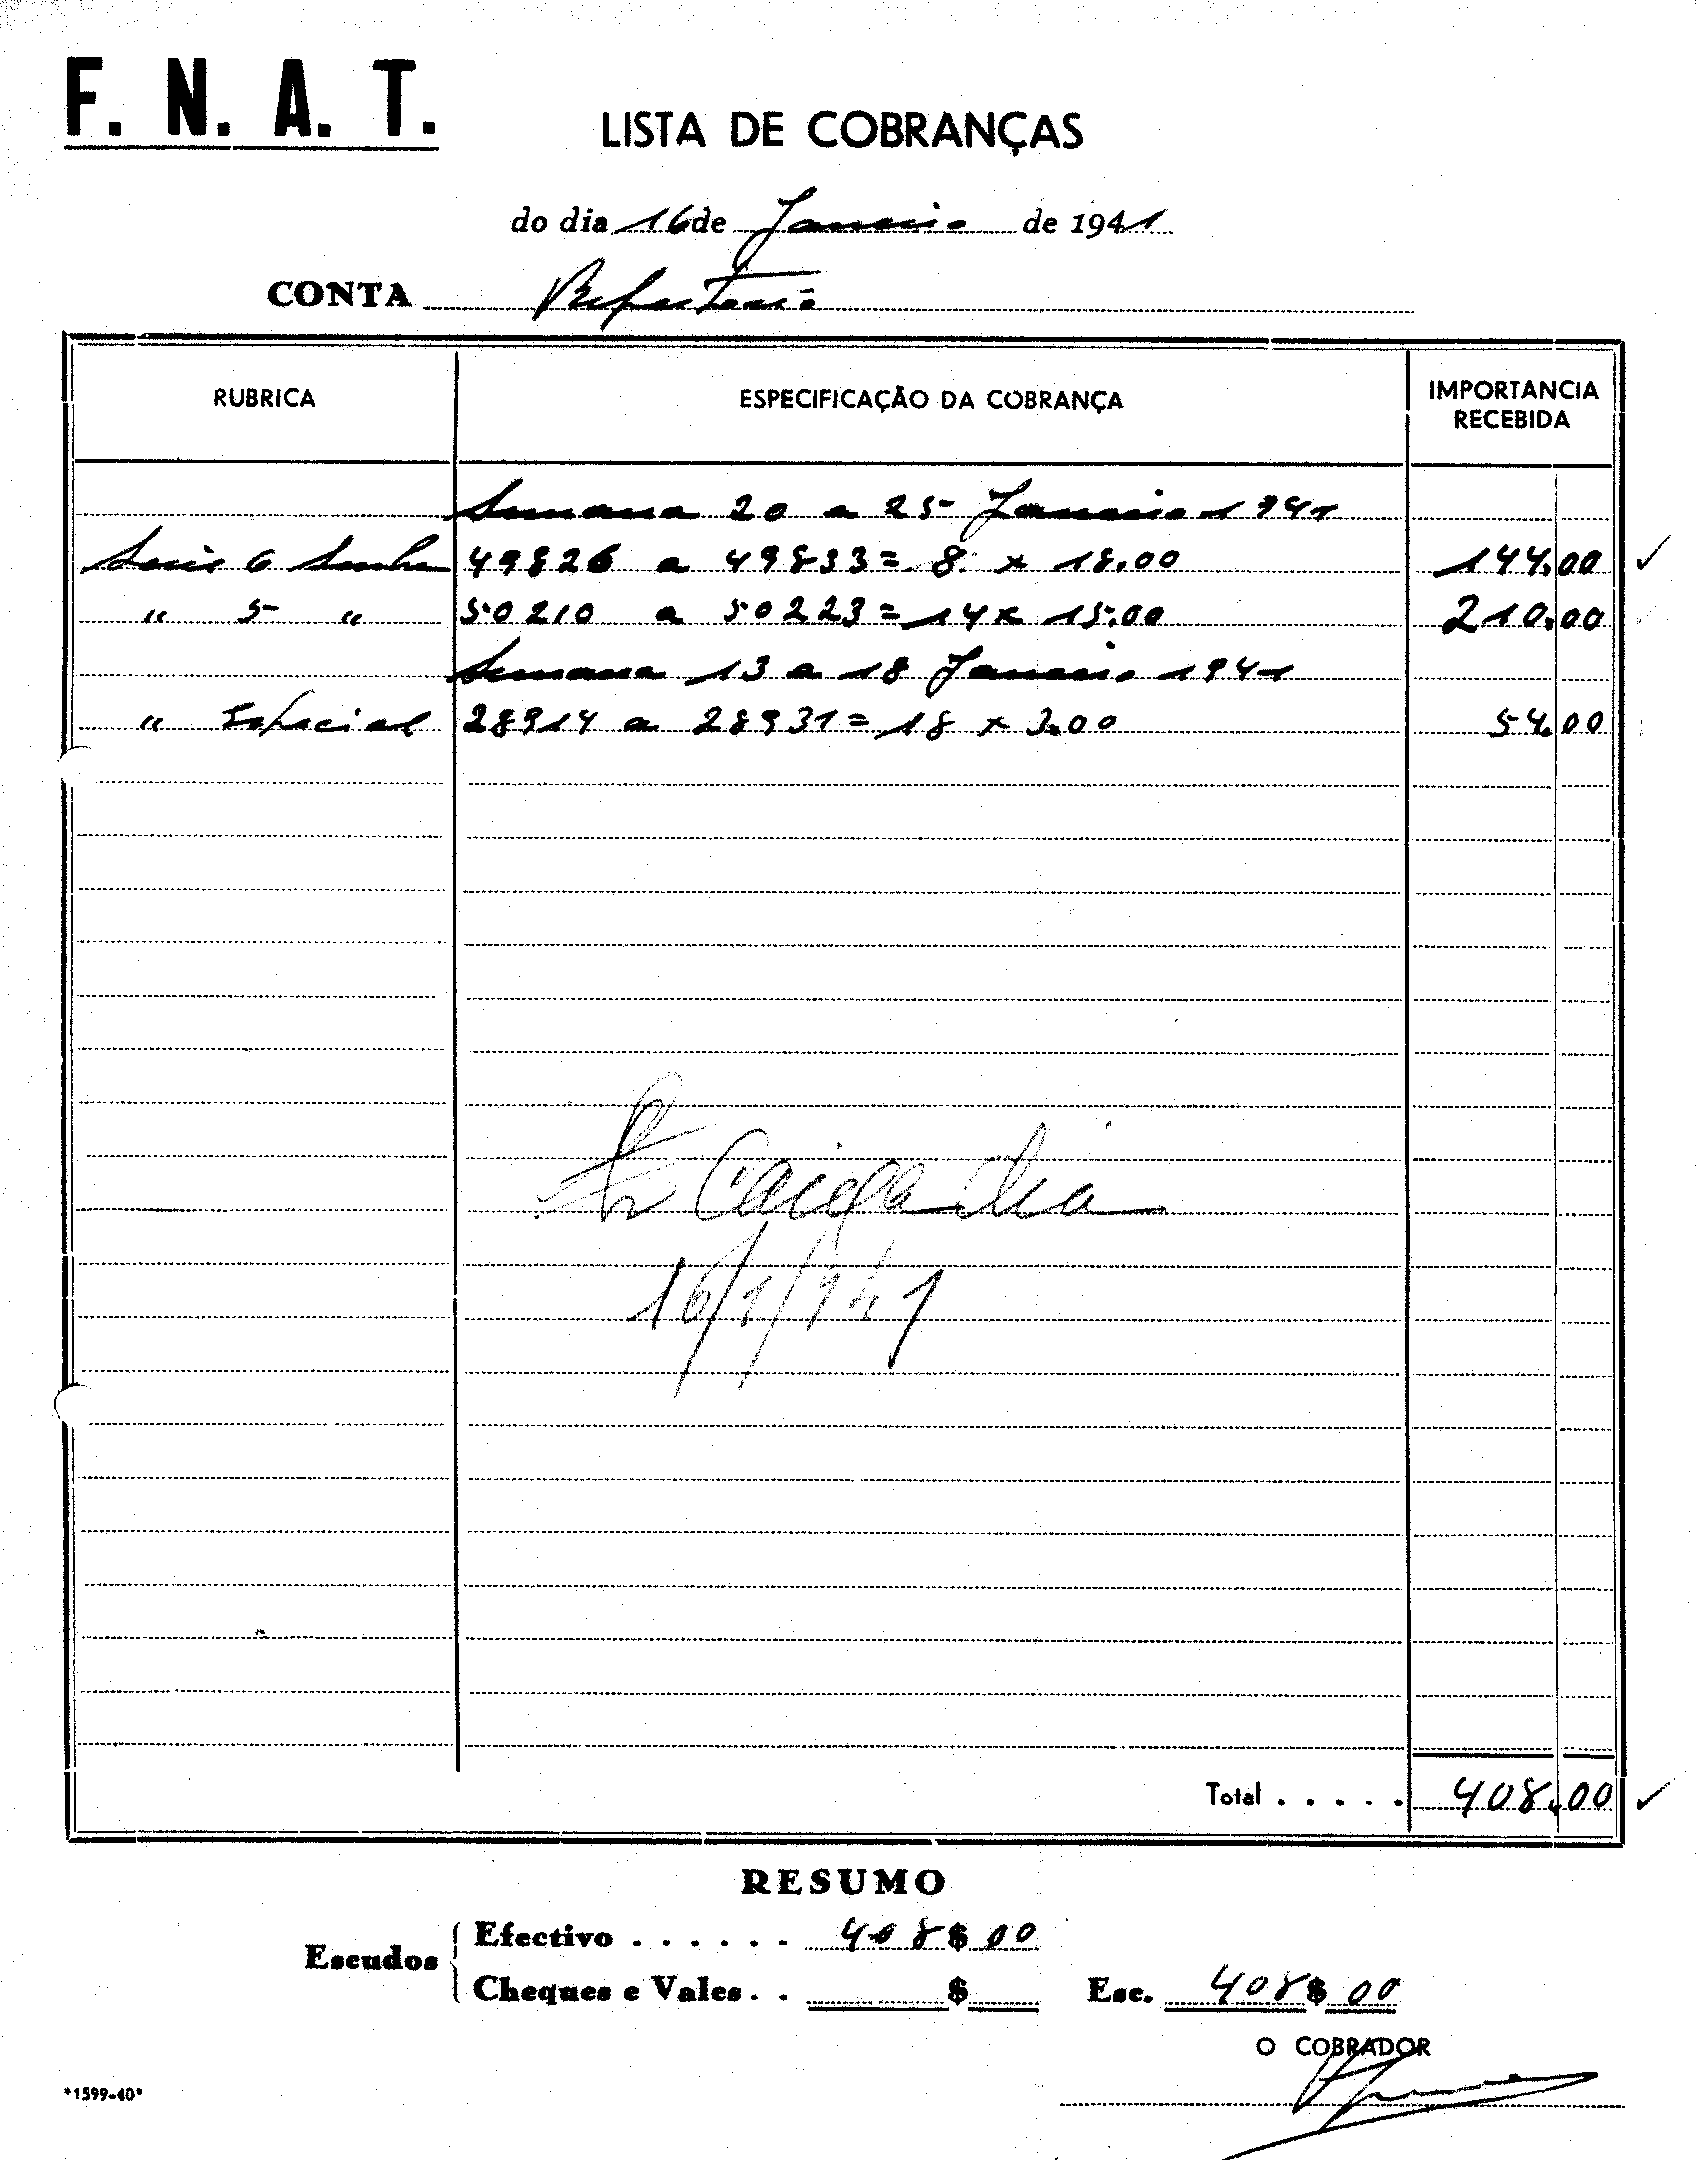 F. N. A. T.
LISTA DE COBRANÇAS
do dia 16 de Janeiro de 1941
CONTA Refeitorio
RUBRICA ESPECIFICAÇÃO DA COBRANÇA IMPORTANCIA RECEBIDA
Semana 20 a 25 Janeiro 1941
Serie 6 Senha 49826 a 49833 = 8 x 18.00 144.00
" 5 " 50210 a 50223 = 14 x 15.00 210.00
Semana 13 a 18 Janeiro 1941
" Especial 28914 a 28931 = 18 x 3.00 54.00
16/1/941
Total . . . . . 408.00
RESUMO
Escudos
Efectivo . . . . . . 408$00
Cheques e Vales . . $ Esc. 408$00
O COBRADOR
*1599-40*